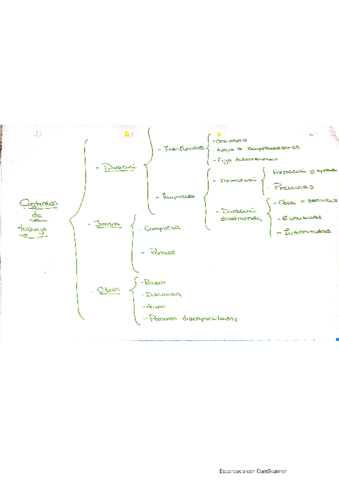 Contratos
de
trabajo
- Duración
- Indefinidos
- Ordinario
- Apoyo a emprendedores
- Fijo discontinuo
- Temporales
- Formación
- Formación y aprend
- Prácticas
- Duración
determinada
- Obra o servicio
- Eventual
- Interinidad
- Jornada
- Completa
- Parcial
- Otros
- Relevo
- Distancia
- Grupo
- Personas discapacitadas
Escaneado con CamScanner